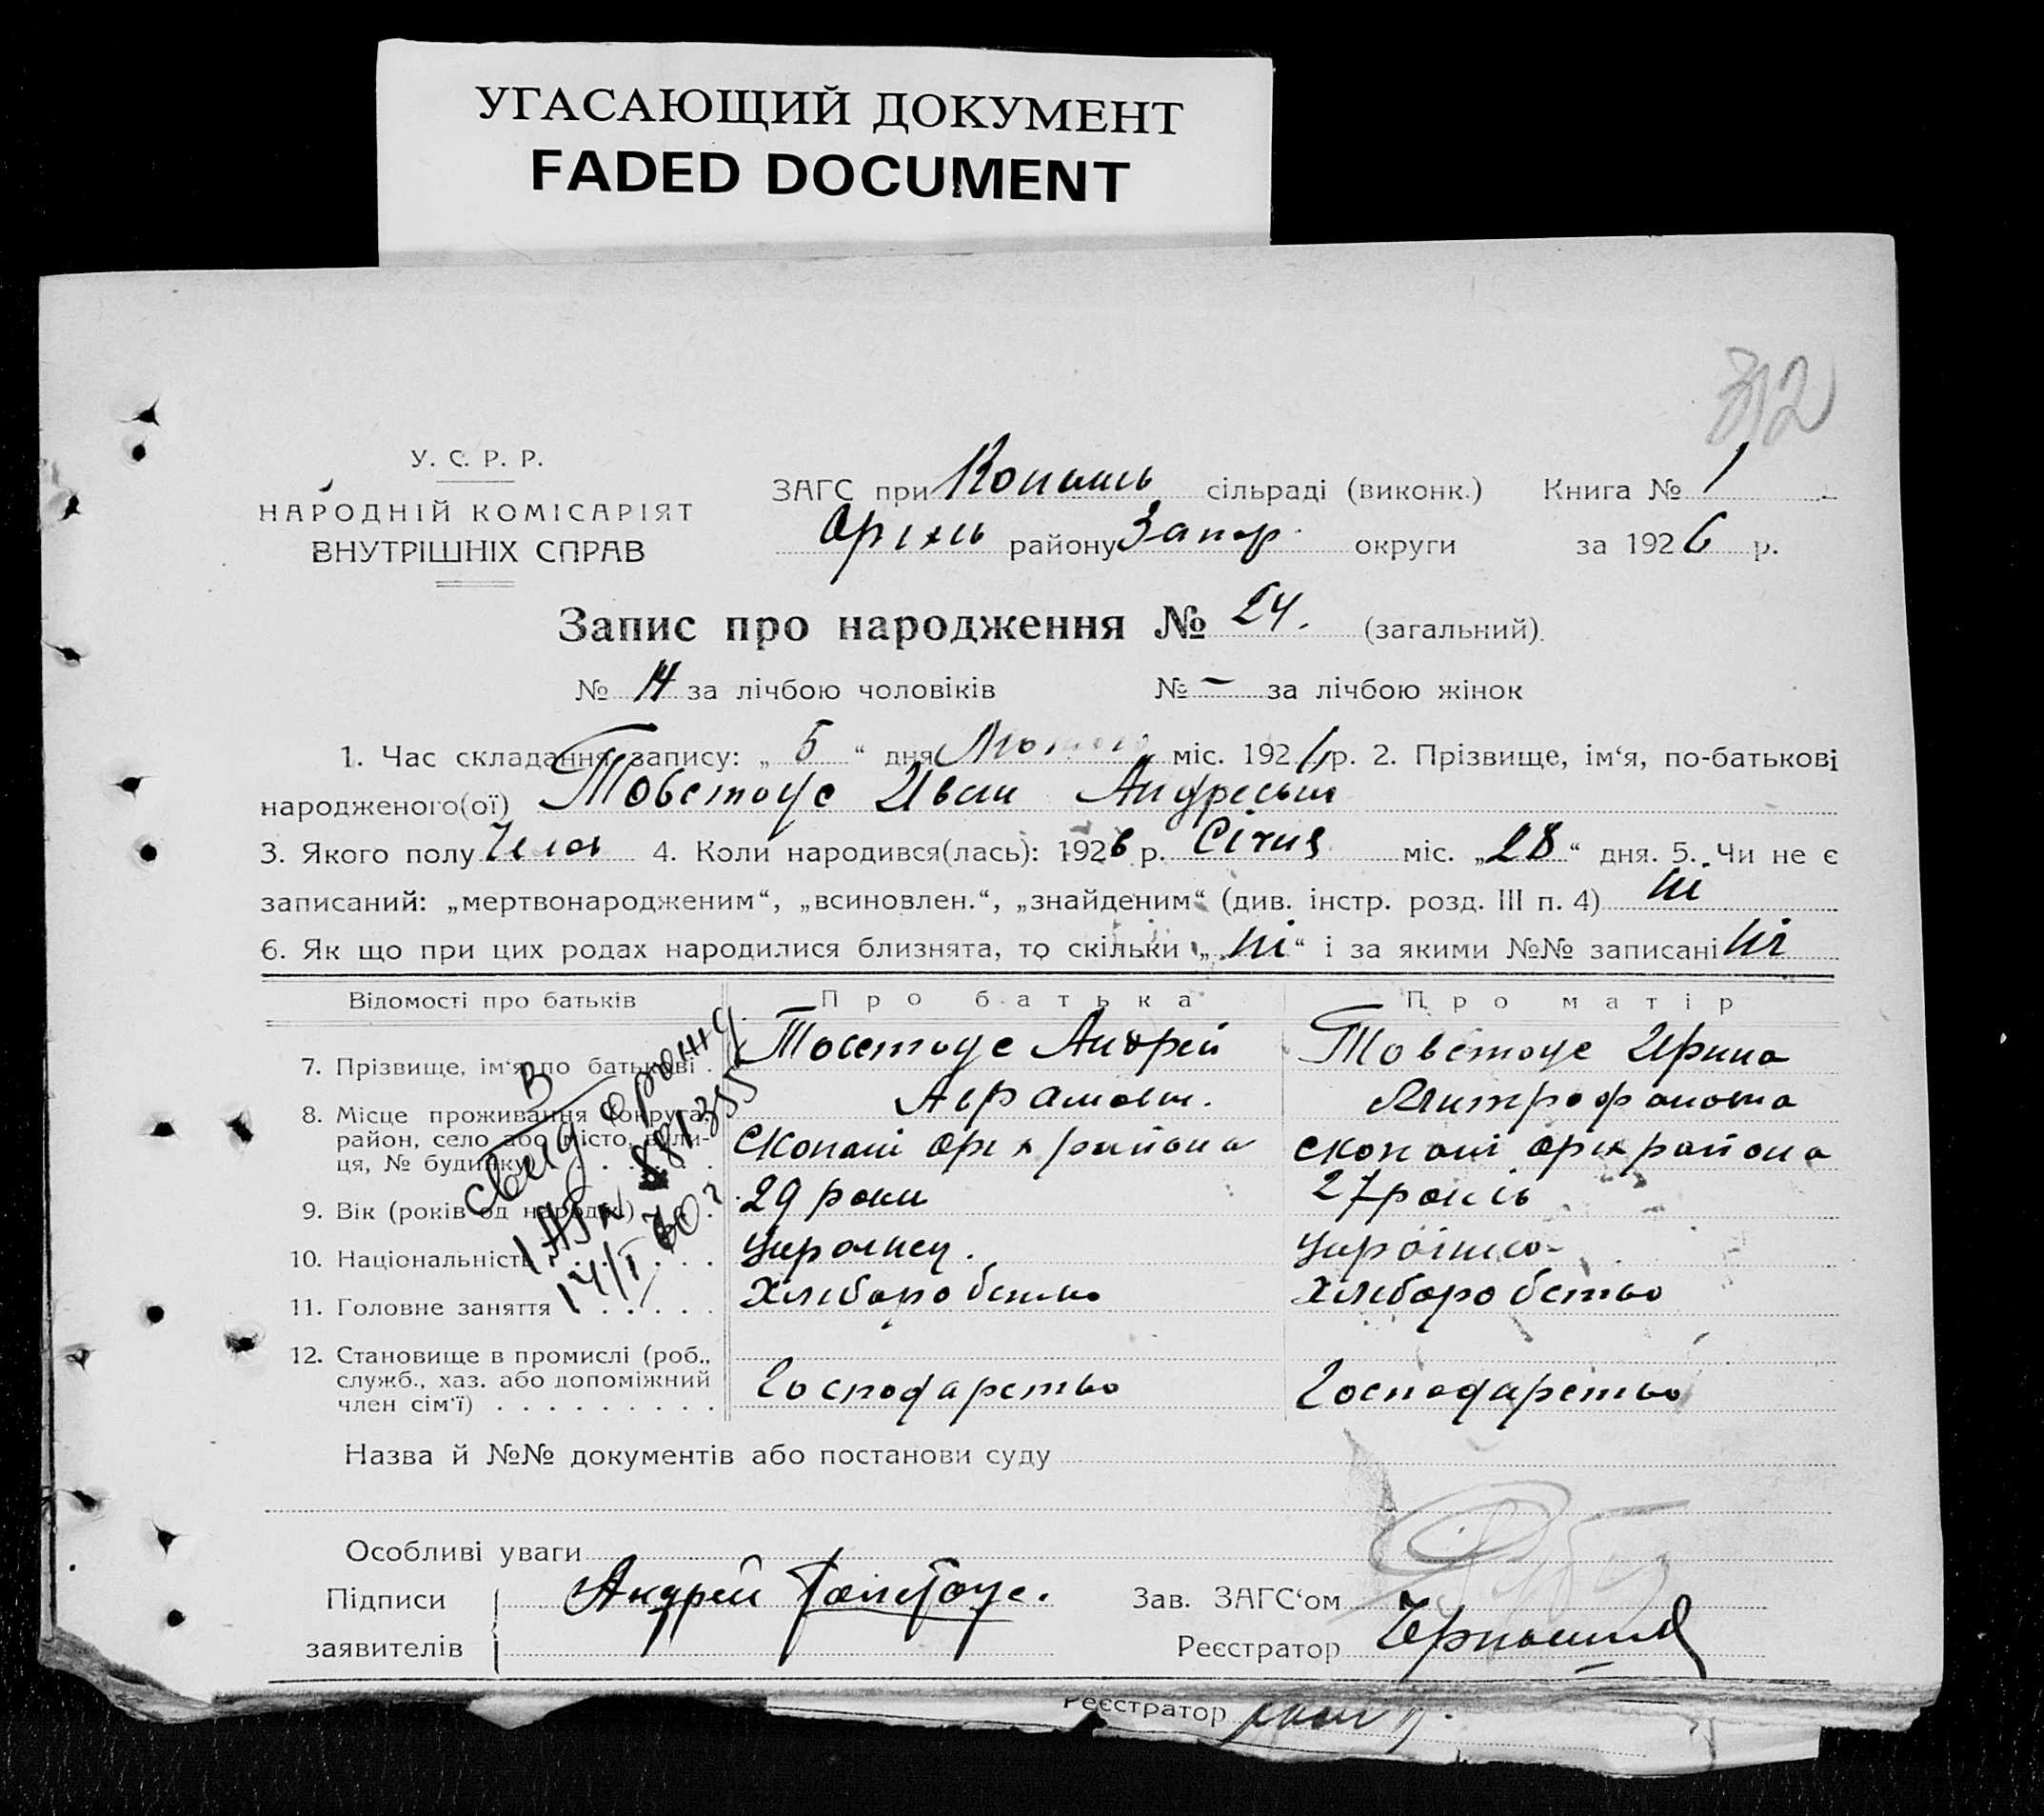 УГАСАЮЩИЙ ДОКУМЕНТ
FADED DOCUMENT
312
У. С. Р. Р.
НАРОДНІЙ КОМІСАРІЯТ
ВНУТРІШНІХ СПРАВ
ЗАГС при сільраді (виконк.) Книга № 1
Оріхів району Запор. округи за 1926 р.
Запис про народження № 24. (загальний).
№ 14 за лічбою чоловіків № — за лічбою жінок
1. Час складання запису: „ 5 “ дня Лютого міс. 1926 р. 2. Прізвище, ім‘я, по-батькові
народженого(ої) Товстоус Иван Андреевич
3. Якого полу 4. Коли народився(лась): 1926 р. Січня міс. „28“ дня. 5. Чи не є
записаний: „мертвонародженим“, „всиновлен.“, „знайденим“ (див. інстр. розд. III п. 4) ні
6. Як що при цих родах народилися близнята, то скільки „ ні “ і за якими №№ записані ні
Відомості про батьків Про батька Про матір
7. Прізвище, ім‘я по батькові . Товстоус Андрей Товстоус Ирина
Митрофановна
8. Місце проживання (округа,
район, село або місто, вули-
ця, № будинку) Скопані Оріх района Скопані Оріх района
9. Вік (років од народж.) 29 роки 27 років
10. Національність Украінец. Украінка
11. Головне заняття Хліборобство Хліборобство
12. Становище в промислі (роб.,
служб., хаз. або допоміжний
член сім‘ї) Господарство Господарство
В
1 АП № 881355
14/I 70 г
Назва й №№ документів або постанови суду
Особливі уваги
Підписи Андрей Толстоус. Зав. ЗАГС‘ом
заявителів Реєстратор
Реєстратор